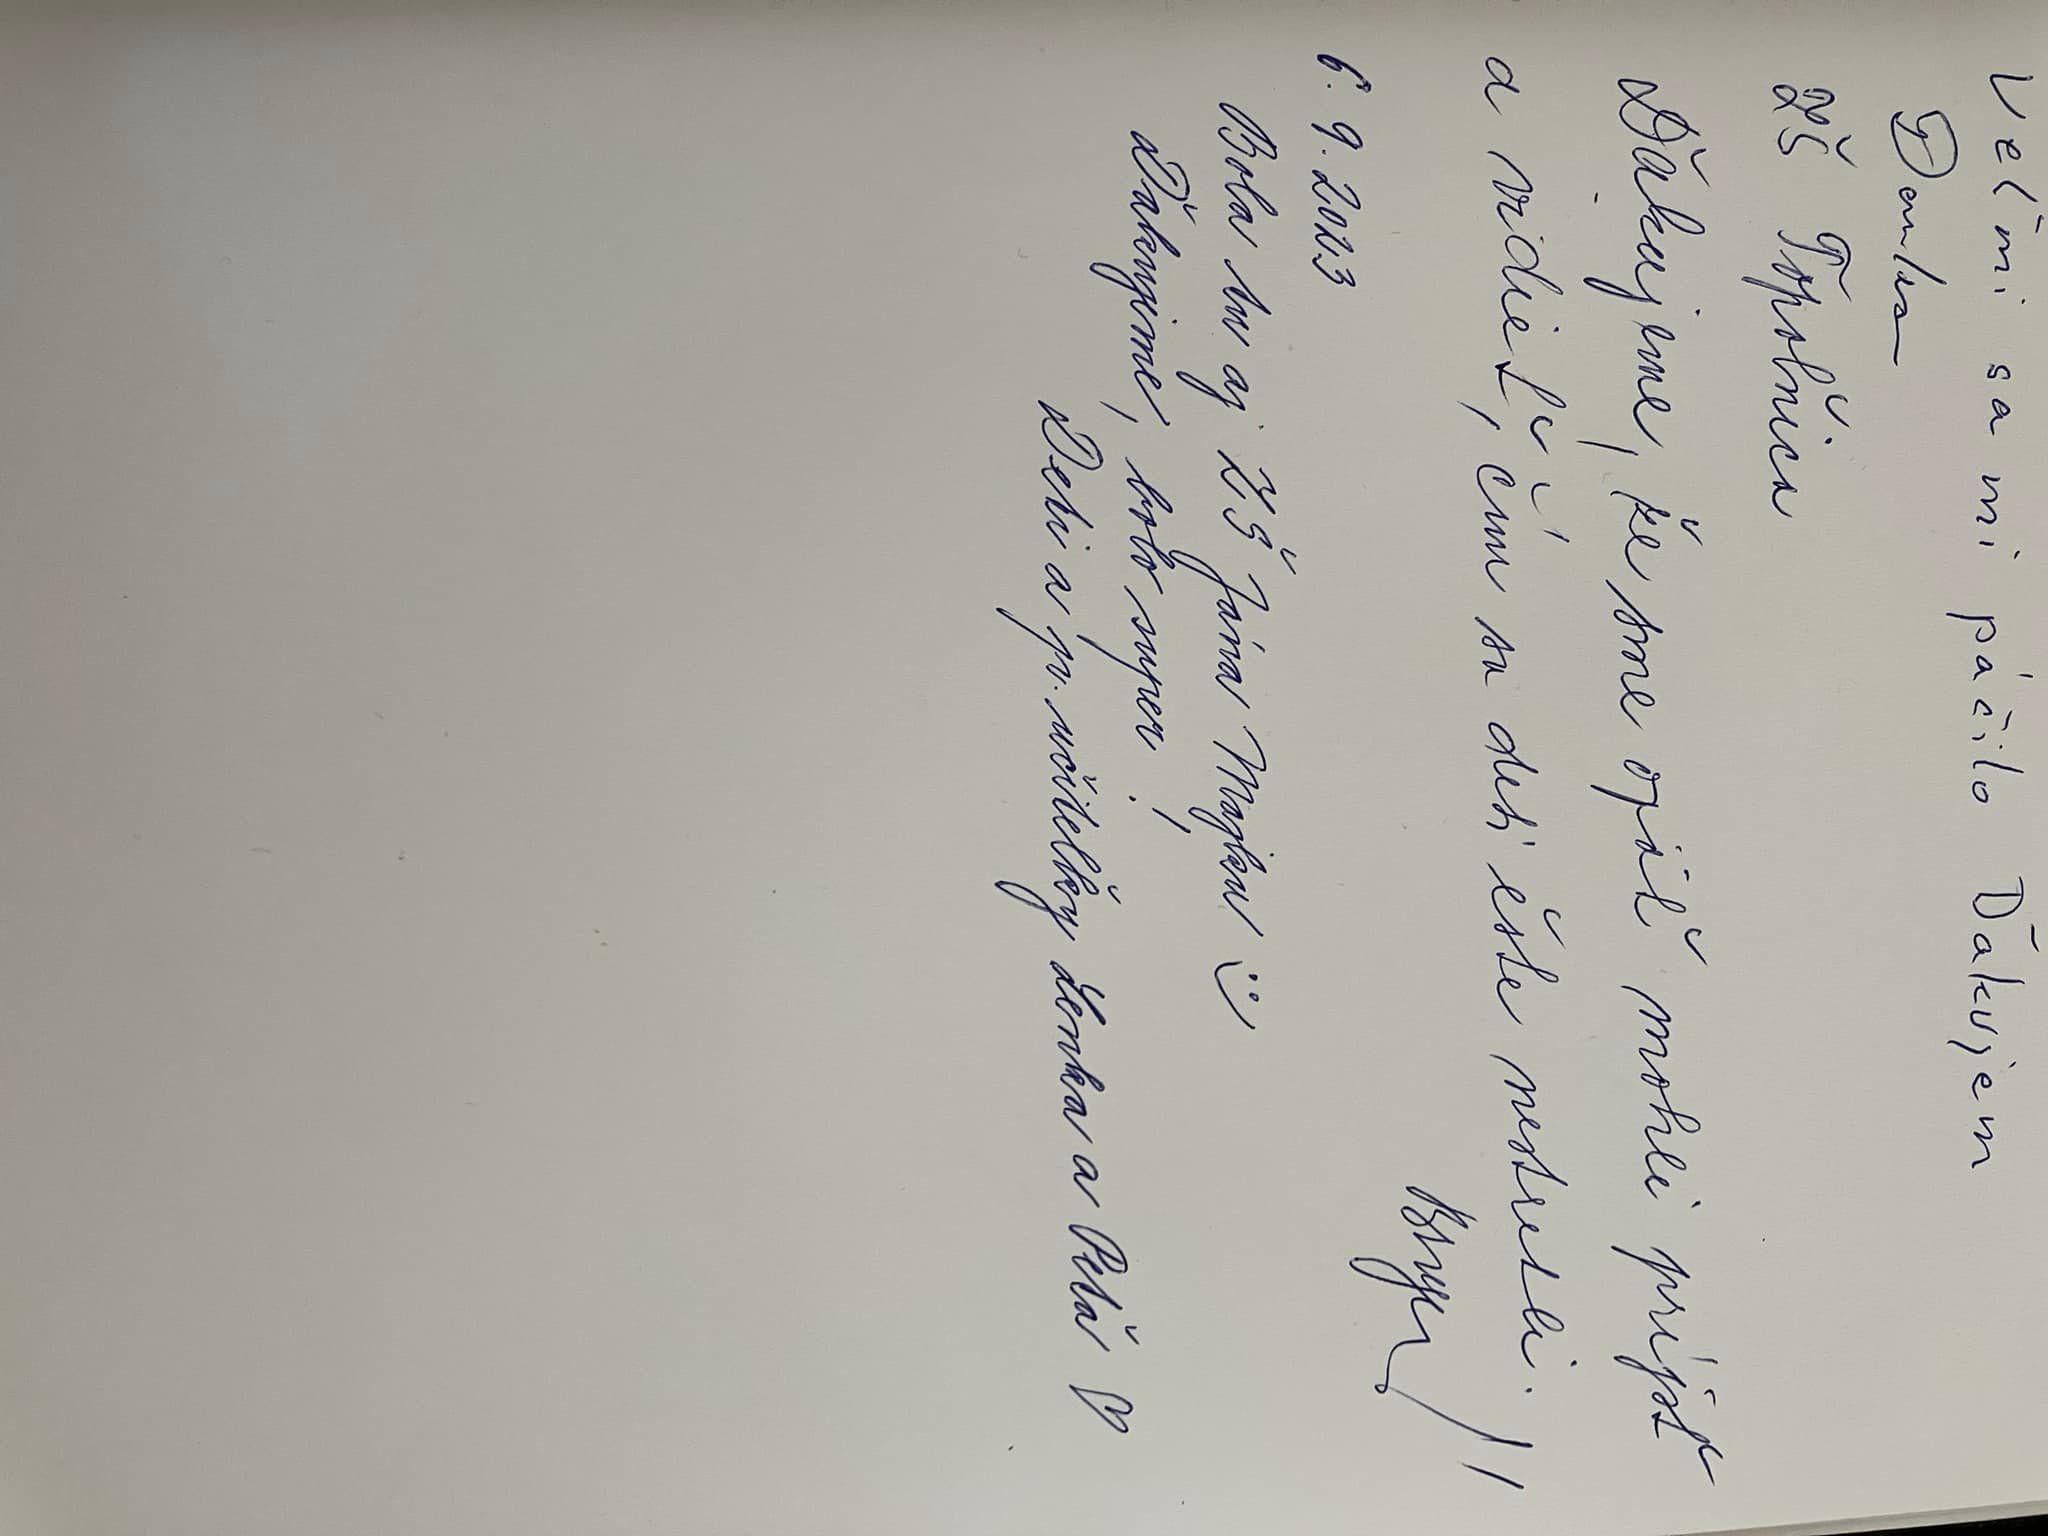 Veľmi sa mi páčilo Ďakujem
ZŠ Topoľnica
Ďakujeme, že sme opäť mohli prísť
a vidieť, čím sa deti ešte nestretli.
6. 9. 2023
Bola tu aj ZŠ Jána Majku :)
Ďakujeme, bolo super!
Deti a p. učiteľky Lenka a Peťa ♡